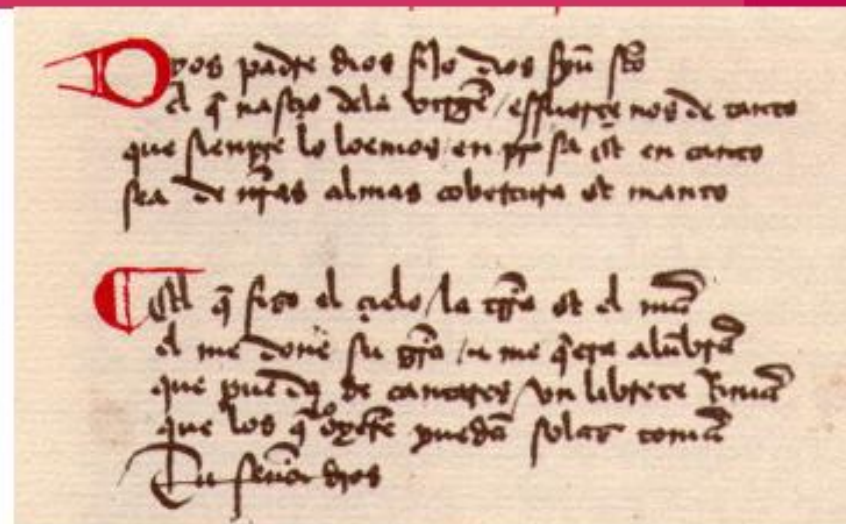 Dyos padre dios fijo dios spũ scõ
el q̃ nasçio dela virgẽ / esfuerçe nos de tanto
que sienpre lo loemos / en prosa et en canto
sea de nr̃as almas cobertura et manto
El q̃ fizo el çielo / la trr̃a et el mar
el me done su grã / e me q̃era alũbrar
que pueda de cantares / vn librete Rimar
que los q̃ lo oyerẽ puedã solaz tomar
Tu señor dios